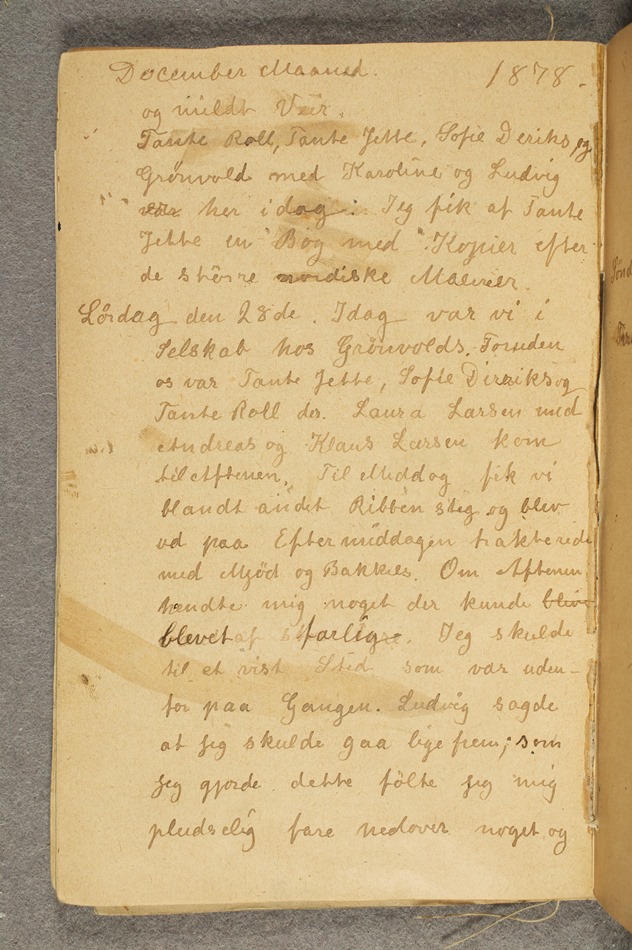 December Maaned. 1878.
og mildt Veir.
Tante Roll, Tante Jette, Sofie Deriks, og
Grönvold med Karoline og Ludvig
var her idag. Jeg fik af Tante
Jette en Bog med Kopier efter
de större nordiske Malerier.
Lördag den 28de. Idag var vi i
Selskab hos Grönvolds. Foruden
os var Tante Jette, Sofie Dirriks og
Tante Roll der. Laura Larsen med
Andreas og Klaus Larsen kom
til Aftenen. Til Middag fik vi
blandt andet Ribbensteg og blev
ud paa Eftermiddagen trakterede
med Mjöd og Bakkels. Om Aftenen
hendte mig noget der kunde blive
blevet farlig. Jeg skulde
til et vist Sted som var uden-
for paa Gangen. Ludvig sagde
at jeg skulde gaa lige frem; som
jeg gjorde dette fölte jeg mig
pludselig fare nedover noget og